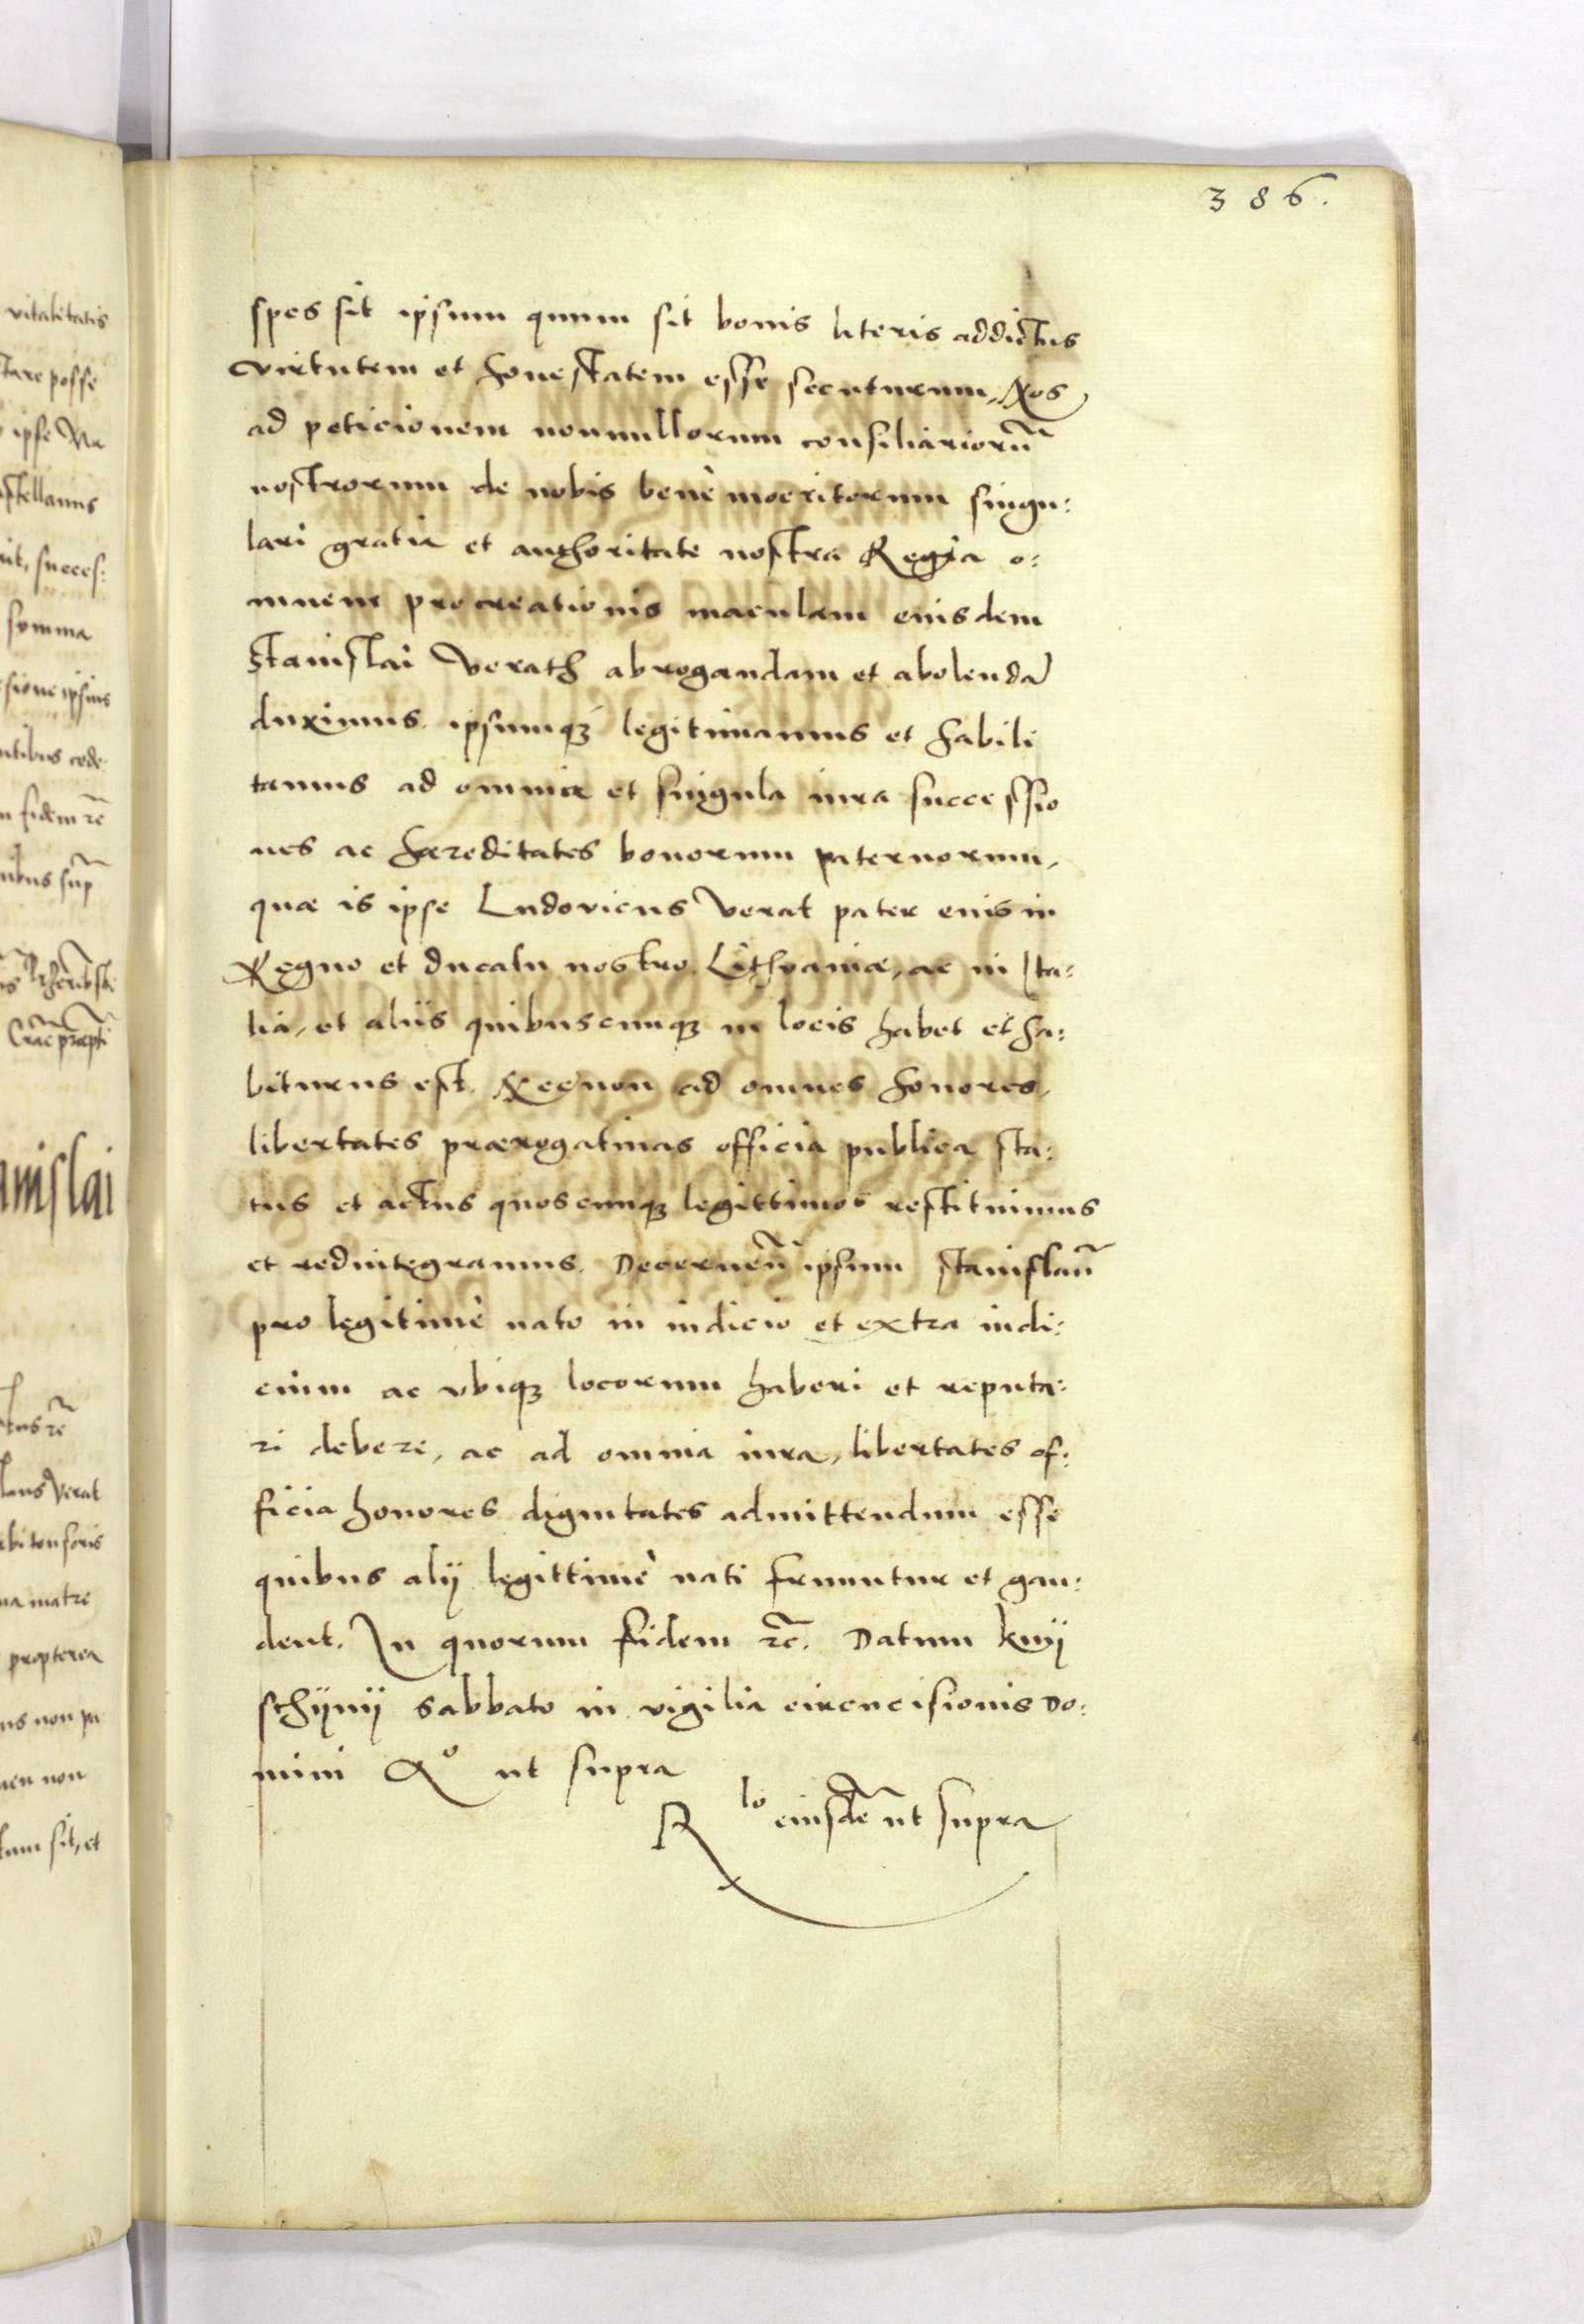 386.
spes sit ipsum quum sit bonis literis addictus
virtutem et honestatem esse secuturum, Nos
ad peticionem nonnullorum consiliariorũ
nostrorum de nobis benè moeritorum singu:
lari gratia et authoritate nostra Regia o:
mnem procreationis maculam eiusdem
Stanislai Verath abrogandam et abolendã
duximus. ipsumq₃ legitimamus et habili
tamus ad omnia et singula iura successio
nes ac hæreditates bonorum paternorum,
quæ is ipse Ludovicus Verat pater eius in
Regno et ducatu nostro Lithvaniæ, ac in Ita:
lia, et aliis quibuscunq₃ in locis habet et ha:
biturus est. Necnon ad omnes honores,
libertates prærogatiuas officia publica sta:
tus et actus quoscunq₃ legittimos restituimus
et redintegramus. Decerneñ ipsum Stanislaũ
pro legitimè nato in iudicio et extra iudi:
cium ac vbiq₃ locorum haberi et reputa:
ri debere, ac ad omnia iura, libertates of:
ficia honores dignitates admittendum esse
quibus alij legittimè nati fruuntur et gau:
dent. In quorum fidem ⁊c̃. Datum knij
schijnij sabbato in vigilia circuncisionis Do:
mini Aº ut supra
R lo eiusdẽ ut supra
vitalitatis
tare posse
ipse Va
stellanus
nit, succes:
summa
sione ipsius
ntibus cede
fidem ⁊c̃
nibus sup̃
anislai
tus ⁊c̃
laus Verat
bitonsoris
na matre
propterea
us non pa
men non
tum sit, et